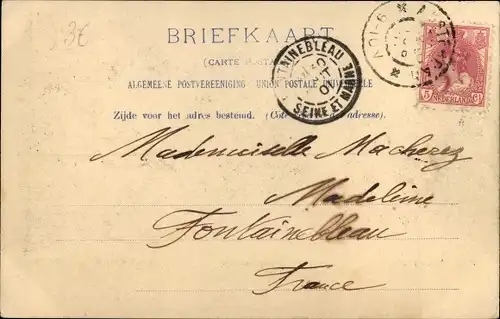 3€
BRIEFKAART
(CARTE POSTALE)
ALGEMEENE POSTVEREENIGING UNION POSTALE UNIVERSELLE
Zijde voor het adres bestemd. (Côté réservé à l'adresse)
FONTAINEBLEAU
SEINE ET MARNE
5 Ct
NEDERLAND
Mademoiselle Macherez
Madeleine
Fontainebleau
France